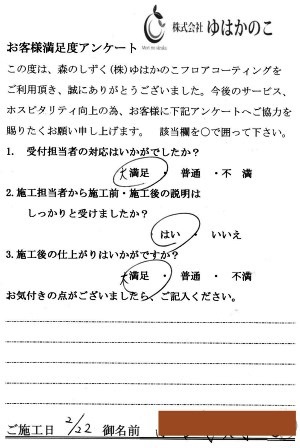 株式会社 ゆはかのこ
お客様満足度アンケート
この度は、森のしずく(株)ゆはかのこフロアコーティングを
ご利用頂き、誠にありがとうございました。今後のサービス、
ホスピタリティ向上の為、お客様に下記アンケートへご協力を
賜りたくお願い申し上げます。 該当欄を○で囲って下さい。
1. 受付担当者の対応はいかがでしたか？
大満足 ・ 普通 ・ 不満
2.施工担当者から施工前・施工後の説明は
しっかりと受けましたか？
はい ・ いいえ
3.施工後の仕上がりはいかがですか？
大満足 ・ 普通 ・ 不満
お気付きの点がございましたら、ご記入ください。
ご施工日 2/22 御名前